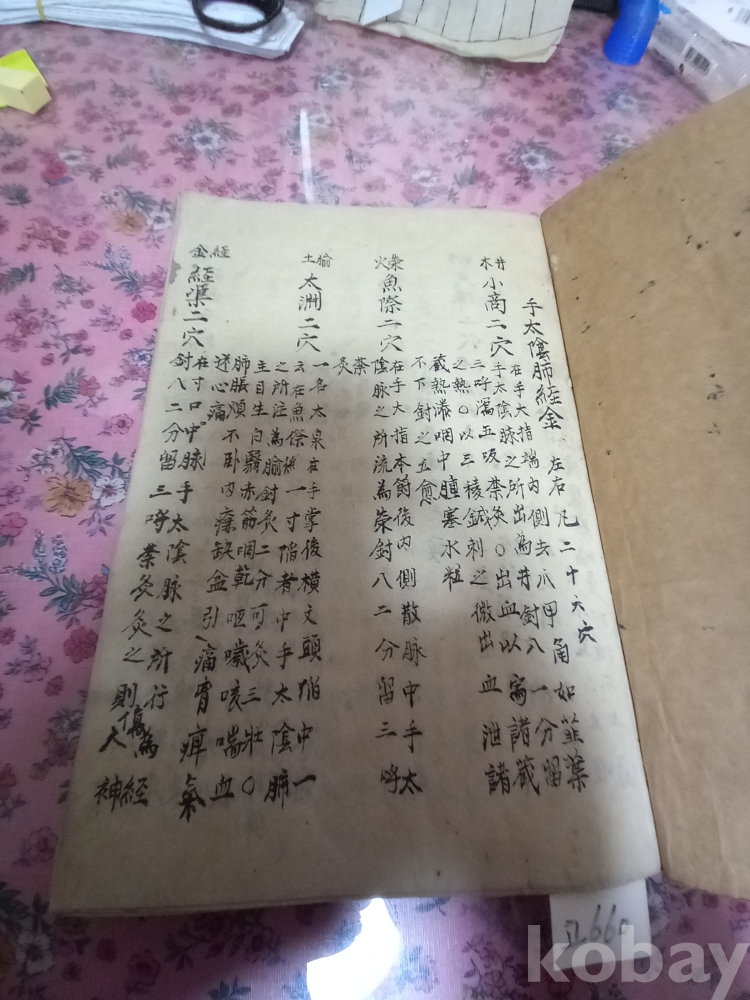 手太陰肺經金 左右凡二十六穴
井木
小商二穴
在手大指端內側去爪甲角如韮葉
手太陰脉之所出為井針一分留
三呼瀉五吸禁灸○出血以寫諸藏
之熱○以三稜鍼刺之微出血泄諸
藏熱湊咽中腫塞水粒
不下針之立愈
榮火
魚際二穴
在手大指本節後內側散脉中手太
陰脉之所流為荣針八二分留三呼
禁灸
腧土
太渊二穴
一名太泉在手掌後橫文頭陷中一
云在魚際後一寸陷者中手太陰肺
之所注為腧針灸二分可灸三壯○
主目生白翳赤筋咽乾嘔噦咳喘血
肺脹煩不卧內痛缺盆引痛胷痺氣
逆心痛
經金
經渠二穴
在寸口中脉手太陰脉之所行為經
針八二分留三呼禁灸灸之則傷人神
五660
kobay